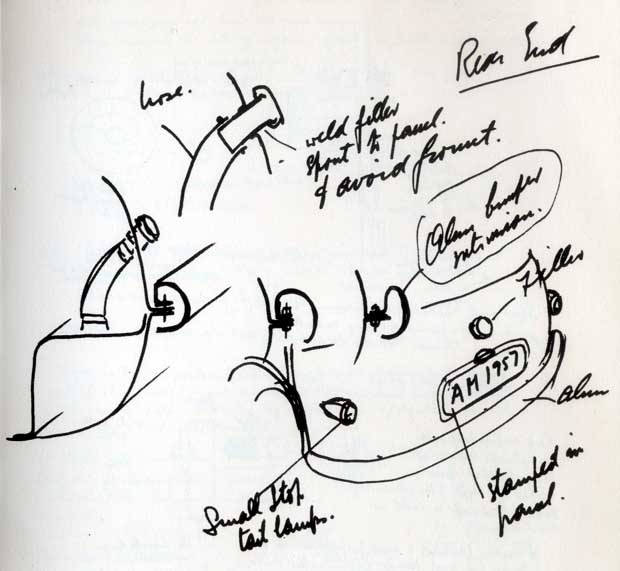 Rear End
hose.
weld filler
spout to panel.
& avoid grommet.
Alum bumper
extrusion.
Filler
AM 1957
Alum
stamped in
panel.
Small Stop
tail lamps.